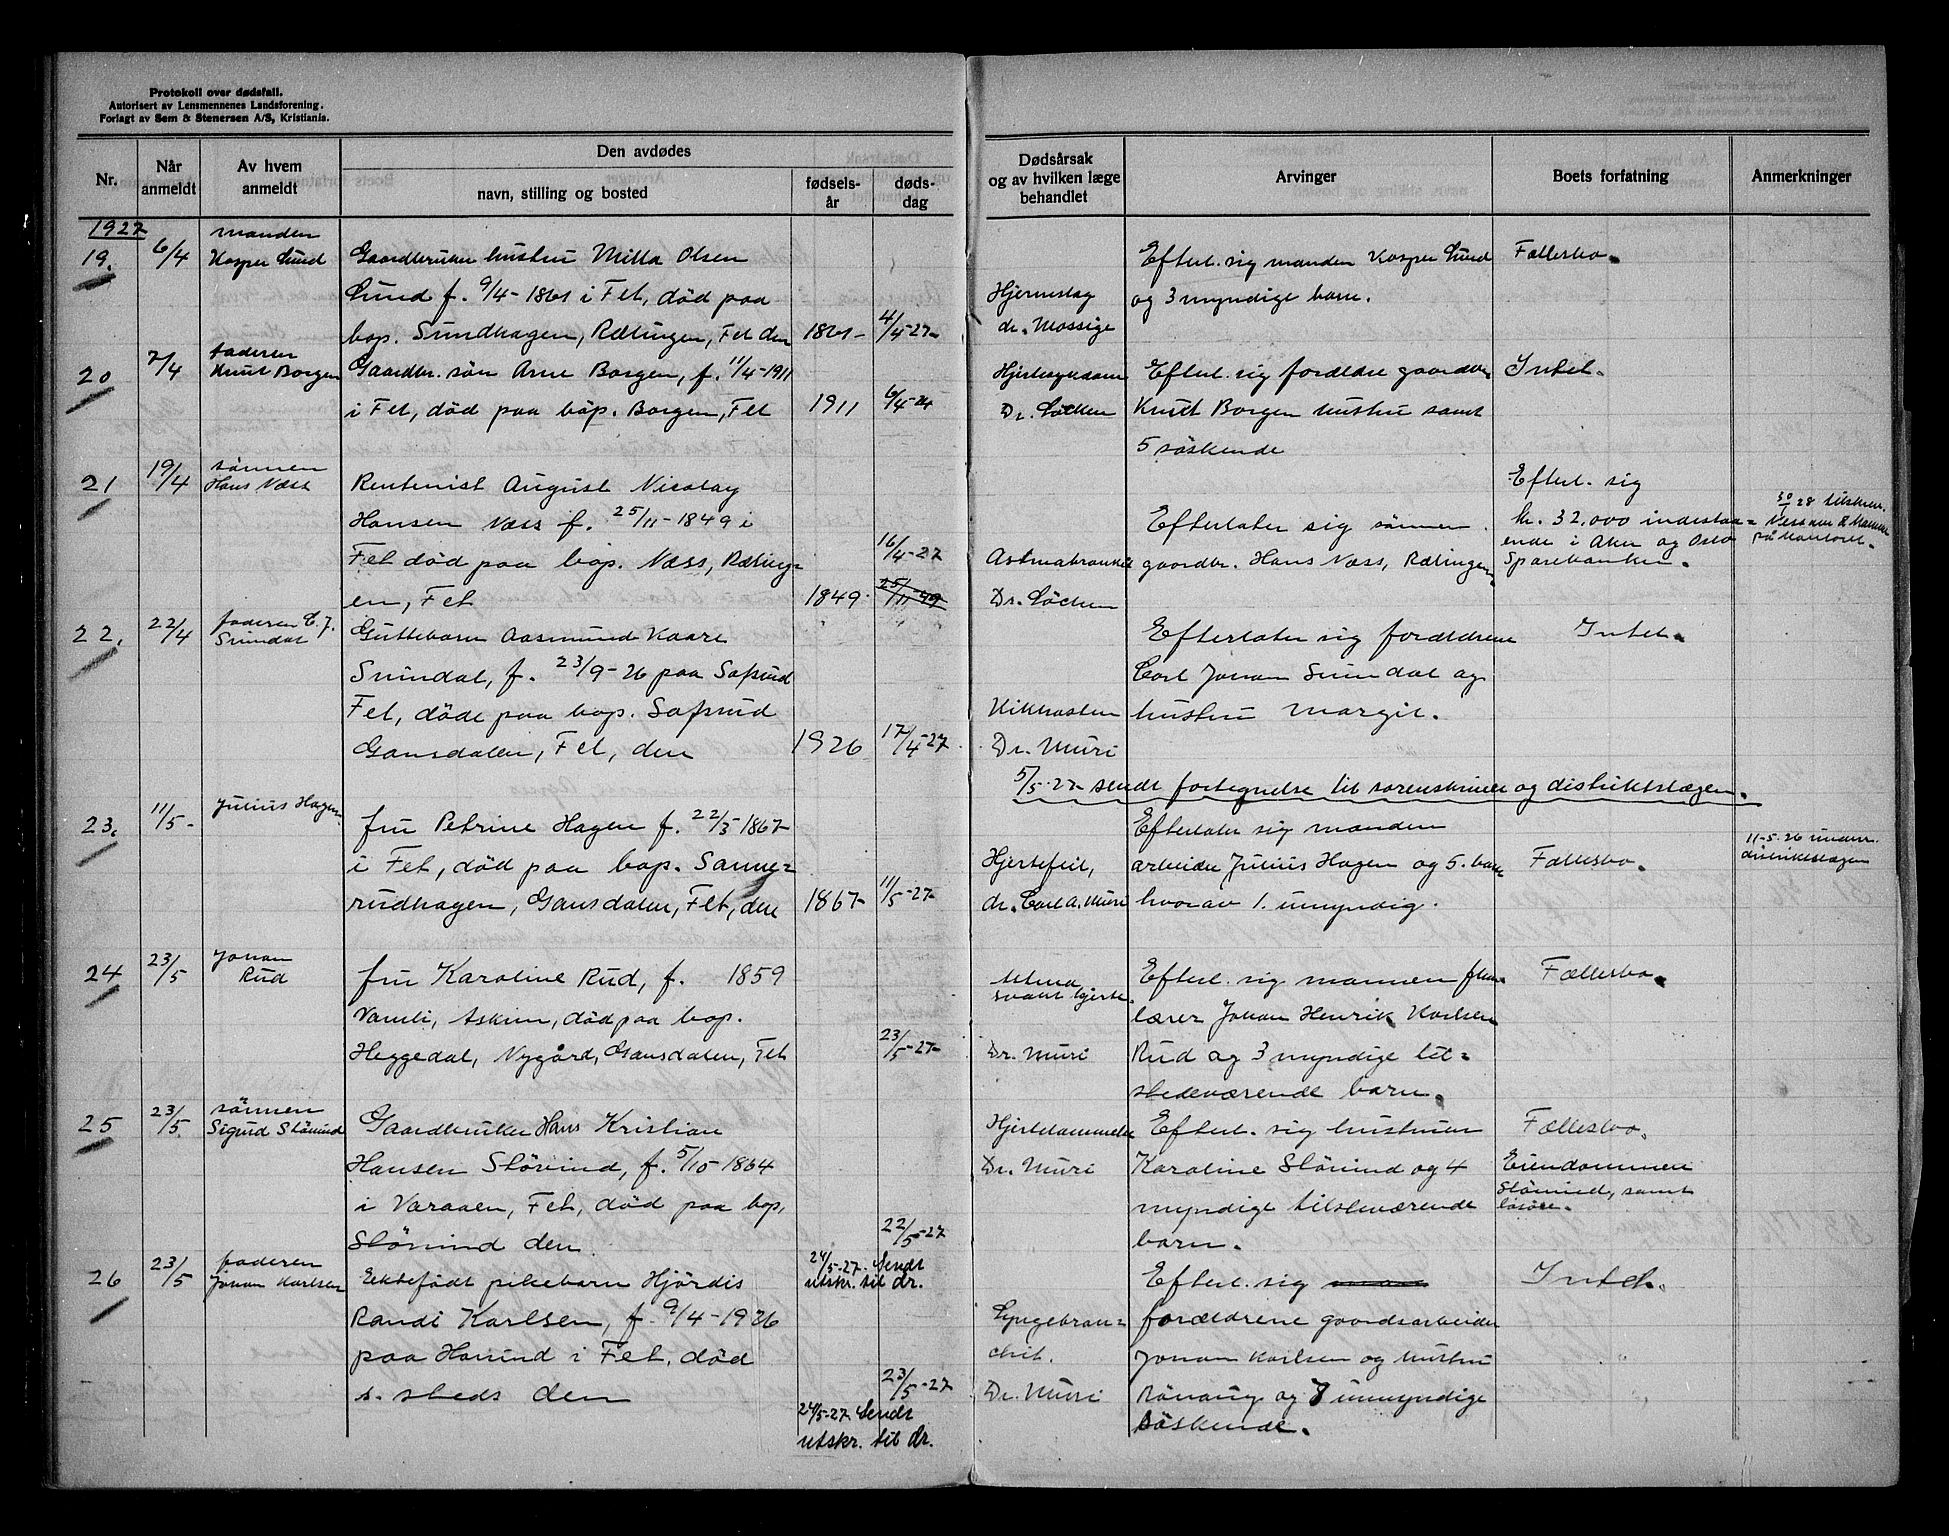 Protokoll over dødsfall.
Autorisert av Lensmennenes Landsforening.
Forlagt av Sem & Stenersen A/S, Kristiania.
Nr.
Når anmeldt
Av hvem anmeldt
Den avdødes
navn, stilling og bosted
fødsels-år
døds-dag
Dødsårsak og av hvilken læge behandlet
Arvinger
Boets forfatning
Anmerkninger
1927
19.
6/4
manden
Kasper Sund
Gaardbruker hustru Milla Olsen
Sund f. 9/4-1861 i Fet, död paa
bop. Sundhagen, Rælingen, Fet den
1861-
4/4-27-
Hjerneslag
dr. Mossige
Efterl. sig manden Kasper Sund
og 3 myndige barn.
Fællesbo.
20
7/4
faderen
Knut Borgen
Gaardbr. søn Arne Borgen, f. 11/4-1911
i Fet, död paa bop. Borgen, Fet
1911
6/4-24
Hjertesykdom
Dr. Löchen
Efterl. sig foreldre gaardbr.
Knut Borgen hustru samt
5 søskende
Intet.
21
19/4
sönnen
Hans Næss
Rentenist August Nicolay
Hansen Næss f. 25/11-1849 i
Fet död paa bop. Næss, Ræling-
en, Fet
1849
16/4-27
25/11-49
Astmabronkit
Dr. Löchen
Efterlater sig sönnen
gaardbr. Hans Næss, Rælingen.
Efterl. sig
kr. 32.000 indestaa=
ende i Aker og Oslo
Sparebanker.
30/1 28 tilskrev.
på kontoret.
22.
22/4
faderen C. J.
Svindal
Guttebarn Aasmund Kaare
Svindal, f. 23/9-26 paa Søfsrud
Fet, döde paa bop. Søfsrud
Gansdalen, Fet, den
1926
17/4-27
Kikhosten
Dr. Muri
Efterlater sig forældrene
Carl Johan Svindal og
hustru Margit.
Intet.
5/5-27- sendt fortegnelse til sorenskriver og distriktslægen.
23.
11/5-
Julius Hagen
fru Petrine Hagen f. 22/3-1867
i Fet, död paa bop. Sanne=
rudhagen, Gansdalen, Fet, den
1867
11/5-27-
Hjertefeil,
dr. Carl A. Muri
Efterlater sig manden
arbeider Julius Hagen og 5. barn
hvorav 1. umyndig.
Fællesbo.
11-5-26 underr.
distriktslægen
24
23/5
Johan
Rud
fru Karoline Rud, f. 1859
Vamli, Askim, död paa bop.
Heggedal, Nygård, Gansdalen, Fet
23/5-27-
Astma,
svakt hjerte.
Dr. Muri
Efterl. sig mannen
lærer Johan Henrik Karlsen
Rud og 3 myndige til=
stedeværende barn.
Fællesbo.
25
23/5.
sönnen
Sigurd Slörind
Gaardbruker Hans Kristian
Hansen Slövind, f. 5/10-1864
i Varaaen, Fet, död paa bop,
Slörind den
22/5-27
24/5-27- Sendt
utskr. til dr.
Hjertelammelse
Dr. Muri
Efterl. sig hustruen
Karoline Slörind og 4
myndige tilsteværende
barn.
Fællesbo.
Eiendommen
Slörind, samt
lösöre.
26
23/5
faderen
Johan Karlsen
Ektefødt pikebarn Hjördis
Randi Karlsen, f. 9/4-1926
paa Hovind i Fet, död
s. steds den
23/5-27
24/5-27- Sendt
utskr. til dr.
Lyngebron=
chit.
Dr. Muri
Efterl. sig
forældrene gaardsarbeider
Johan Karlsen og hustru
Rönaug og 7 umyndige
søskende.
Intet.